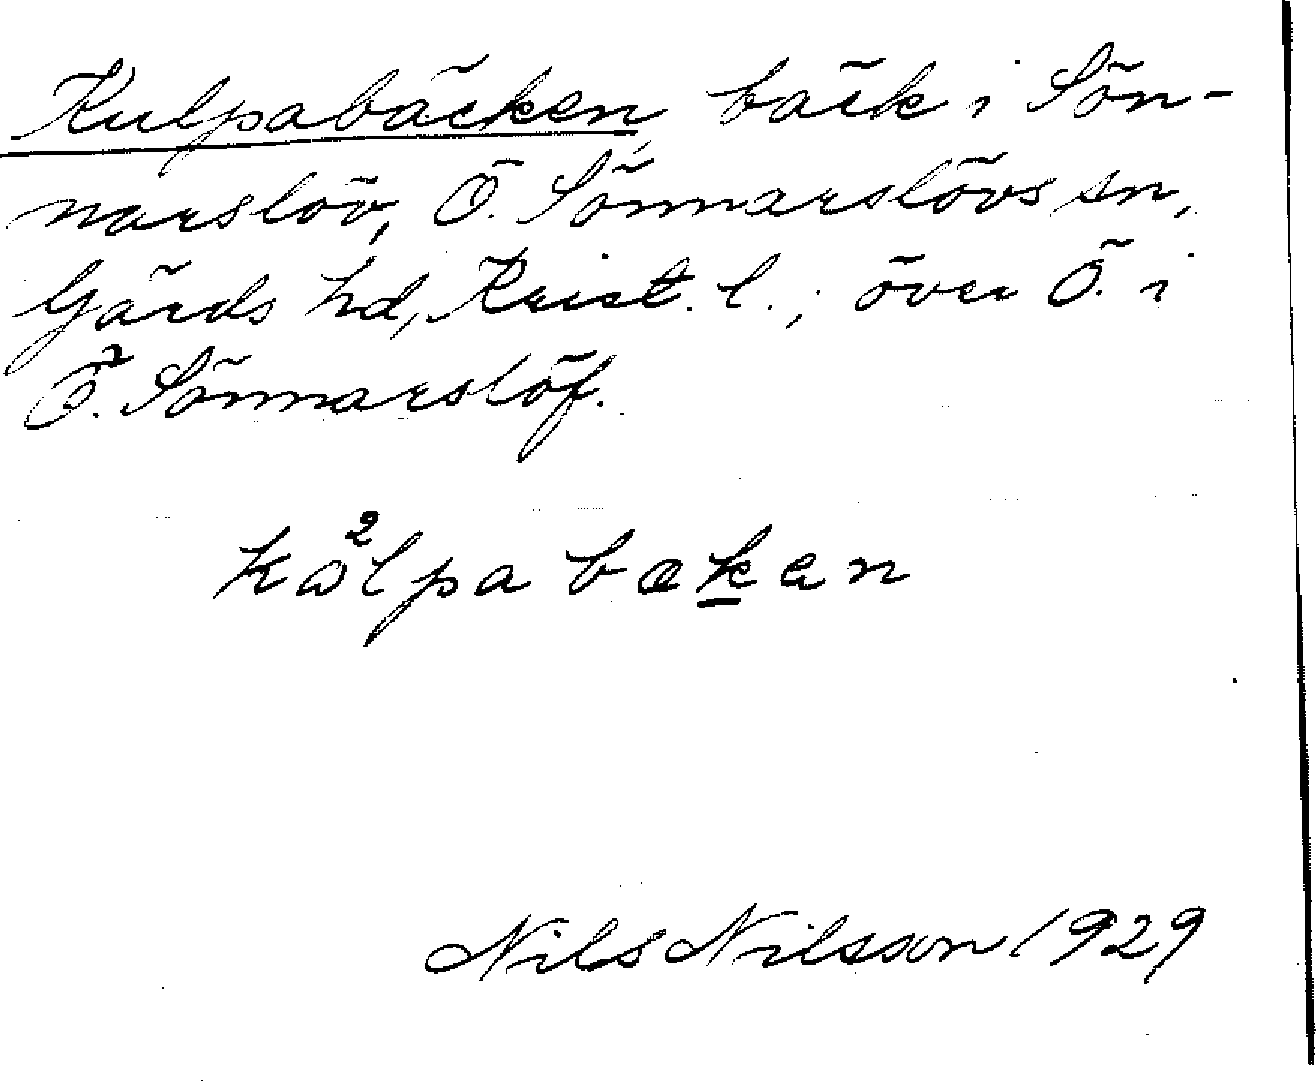 Kulpabäcken, bäck i Sön-
narslöv, Ö. Sönnarslövs sn,
Gärds hd, Krist. l.; över Ö. i
Ö. Sönnarslöf.
kω²lpa bækan
Nils Nilsson 1929